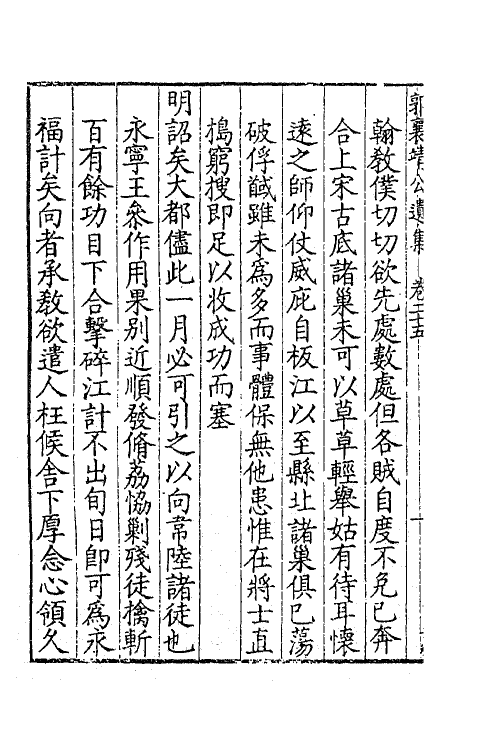 郭襄靖公遺集 卷二十五
翰教僕切切欲先處數處但各賊自度不免已奔
合上宋古底諸巢未可以草草輕舉姑有待耳懷
遠之師仰仗威庇自板江以至縣北諸巢俱已蕩
破俘馘雖未為多而事體保無他患惟在將士直
搗窮搜即足以收成功而塞
明詔矣大都儘此一月必可引之以向常陸諸徒也
永寧王叅作用果別近順發脩荔恊剿殘徒擒斬
百有餘功目下合擊碎江計不出旬日卽可為永
福計矣向者承教欲遣人枉候舍下厚念心領久